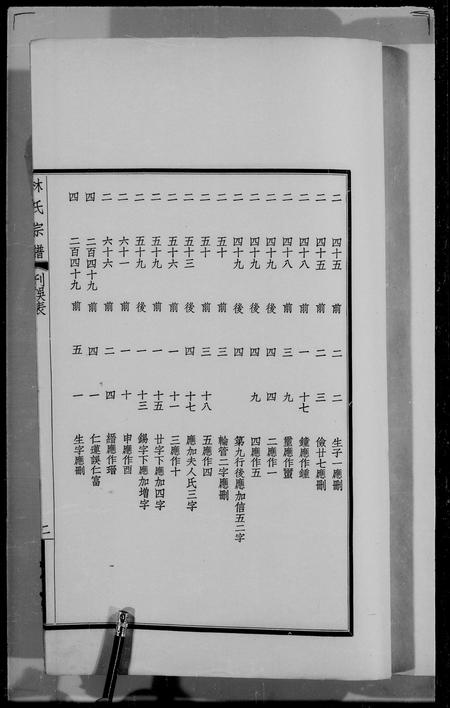 二 四十五 前 二 二 生子一應刪
二 四十五 前 二 三 儉廿七應刪
二 四十八 前 一 十七 鐘應作鍾
二 四十八 前 三 九 應作
二 四十九 後 四 四 二應作一
二 四十九 後 四 九 四應作五
二 四十九 後 四 第九行後應加信五二字
二 五十 前 三 輪管二字應刪
二 五十 前 三 十八 五應作四
二 五十三 後 四 十七 應加夫人氏三字
二 五十六 前 一 十一 三應作十
二 五十九 前 一 十五 廿字下應加四字
二 五十九 後 一 十三 錫字下應加增字
二 六十一 前 一 十 申應作酉
二 六十六 前 二 四 縉應作瑨
四 二百四十九 前 四 一 仁蓮誤仁富
四 二百四十九 前 五 一 生字應刪
林氏宗譜 刊誤表 二